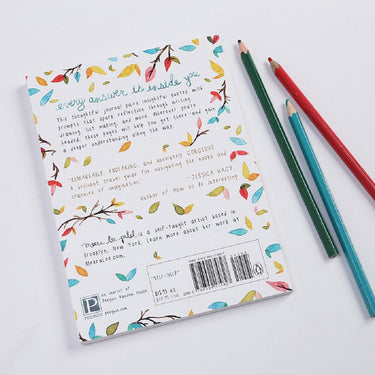 every answer is inside you
This thoughtful journal pairs insightful quotes with
prompts that spark reflection through writing,
drawing, list making, and more. Wherever you're
headed, these pages will help you get there—and gain
a deeper understanding along the way.
"REMARKABLE, FREAKING, and absolutely GORGEOUS.
A brilliant travel guide for navigating the nooks and
crannies of imagination."
—JESSICA HAGY,
author of How to Be Interesting
Meera Lee Patel is a self-taught artist based in
Brooklyn, New York. Learn more about her work at
MeeraLee.com.
P
an imprint of
Penguin Random House
penguin.com
"SELF-HELP"
$15.95 U.S.